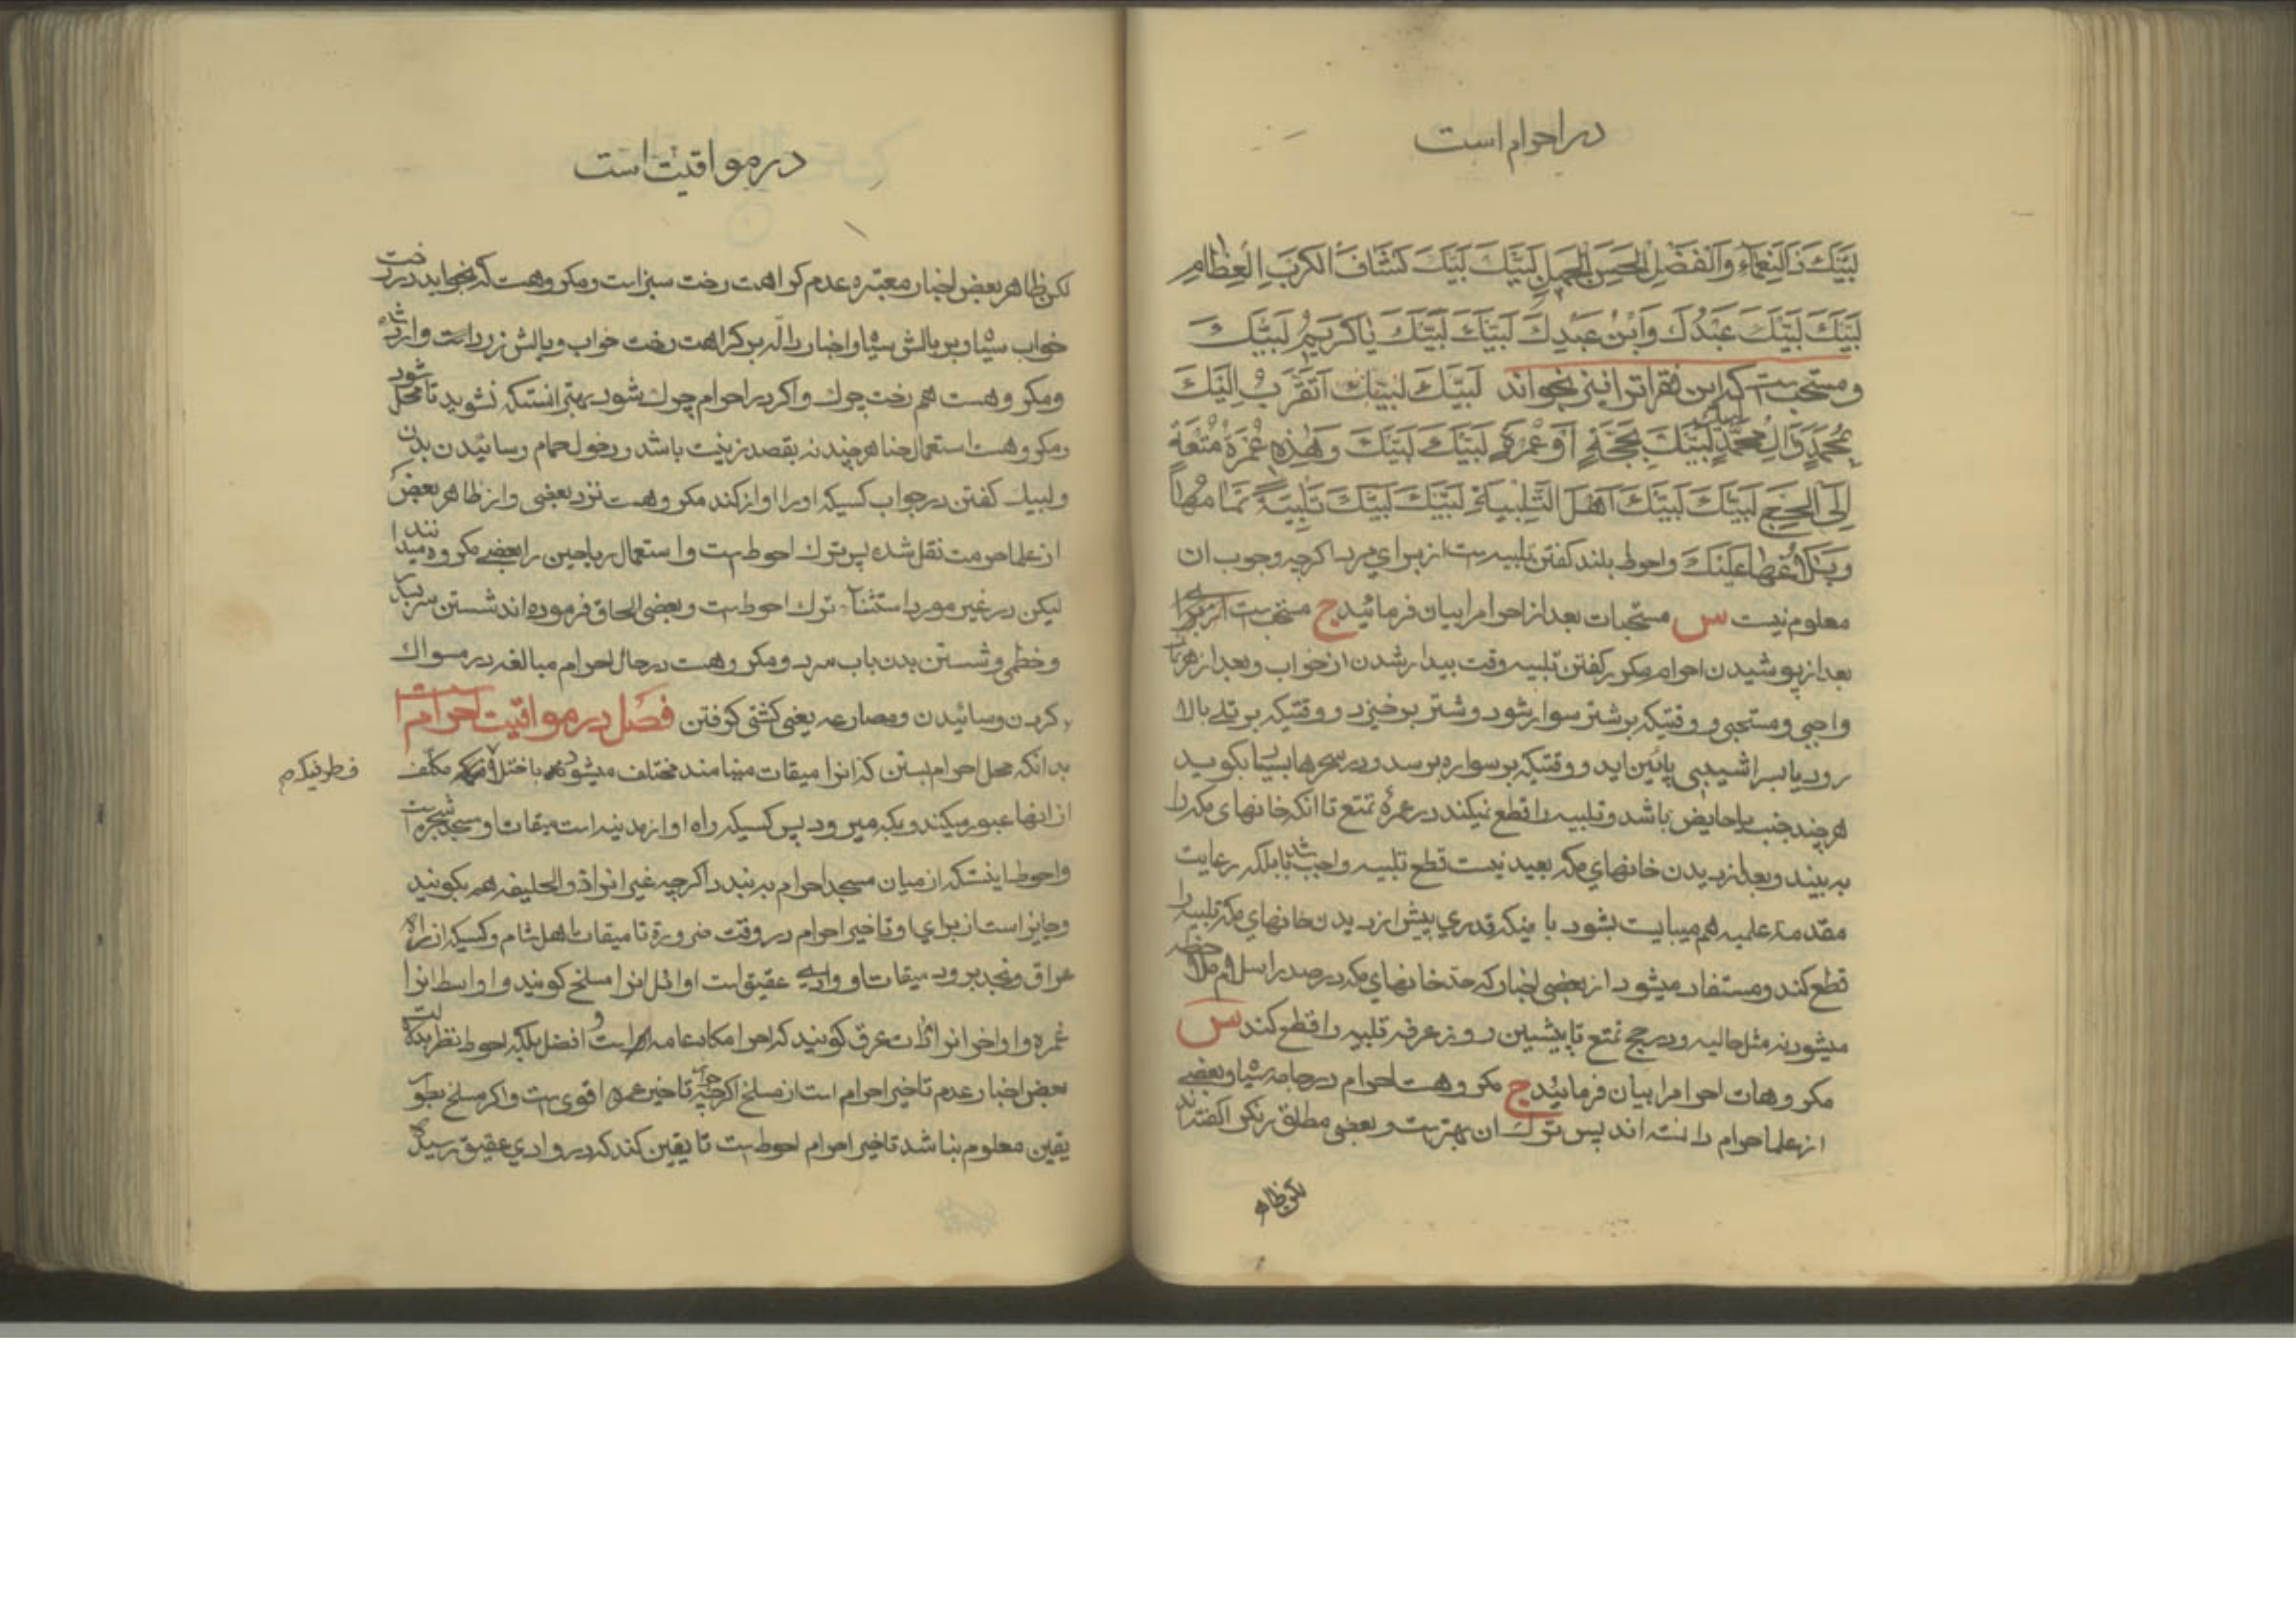 در احرام است
لَبَّيْكَ ذَالنَّعْمَاءِ وَالْفَضْلِ الْحَسَنِ الْجَمِيلِ لَبَّيْكَ لَبَّيْكَ كَشَّافَ الْكُرَبِ الْعِظَامِ
لَبَّيْكَ لَبَّيْكَ عَبْدُكَ وَابْنُ عَبْدِكَ لَبَّيْكَ لَبَّيْكَ يَا كَرِيمُ لَبَّيْكَ
و مستحب است که این فقرات را نیز بخواند لَبَّيْكَ لَبَّيْكَ اَتَقَرَّبُ اِلَيْكَ
بِمُحَمَّدٍ وَالِ مُحَمَّدٍ لَبَّيْكَ لَبَّيْكَ بِحَجَّةٍ اَوْ عُمْرَةٍ لَبَّيْكَ لَبَّيْكَ وَهٰذِهِ عُمْرَةُ مُتْعَةٍ
اِلَى الْحَجِّ لَبَّيْكَ لَبَّيْكَ اَهْلَ التَّلْبِيَةِ لَبَّيْكَ لَبَّيْكَ تَلْبِيَةً تَمَامُهَا
وَبَلَاغُهَا عَلَيْكَ و احوط بلند گفتن تلبیه است از برای مرد اگرچه وجوب ان
معلوم نیست س مستحبات بعد از احرام را بیان فرمائید ج مستحب است از برای
بعد از پوشیدن احرام مکرر گفتن تلبیه وقت بیدار شدن از خواب و بعد از هر نماز
واجبی و مستحبی و وقتیکه بر شتر سوار شود و شتر بر خیزد و وقتیکه بر تلی بالا
رود یا بسراشیبی پائین اید و وقتیکه بر سواره برسد و در سحرها بسیار بگوید
هر چند جنب یا حایض باشد و تلبیه را قطع نیکند در عمرهٔ تمتع تا انکه خانهای مکه را
به بیند و بعد از دیدن خانهای مکه بعید نیست قطع تلبیه واجب باشد بلکه رعایت
مقدمهٔ علمیه هم میبایست بشود با ینکه قدری پیش از دیدن خانهای مکه تلبیه را
قطع کند و مستفاد میشود از بعضی اخبار که حد خانهای مکه در صدر اسلام ملاحظه
میشود نه مثل حالیه و در حج تمتع تا پیشین روز عرفه تلبیه را قطع کند س
مکروهات احرام را بیان فرمائید ج مکروهست احرام در جامه سیاه و بعضی
از علما حرام دانسته اند پس ترک ان بهتر است و بعضی مطلق رنگ را گفته اند
لکن ظاهر
در مواقیت است
لکن ظاهر بعض اخبار معتبره عدم کراهت رخت سبز است و مکروهست که بخوابد در رخت
خواب سیاه و بر بالش سیاه و اخبار داله بر کراهت رخت خواب و بالش زرد است وارد شده
و مکروهست هم رخت چرک و اگر در احرام چرک شود بهتر انستکه نشوید تا محل شود
و مکروهست استعمال حنا هر چند نه بقصد زینت باشد و دخول حمام و سائیدن بدن
و لبیک گفتن در جواب کسیکه او را اواز کند مکروهست نزد بعضی و از ظاهر بعض
از علما حرمت نقل شده پس ترک احوط است و استعمال ریاحین را بعضی مکروه میدانند
لیکن در غیر مورد استثنا ترک احوط است و بعضی الحاق فرموده اند شستن سر بسدر
و خطمی و شستن بدن باب سرد و مکروهست در حال احرام مبالغه در مسواک
کردن و سائیدن و مصارعه یعنی کشتی گرفتن فصل در مواقیت احرام است
بدانکه محل احرام بستن که انرا میقات مینامند مختلف میشود باختلاف مکلف
از انها عبور میکند و بمکه میرود پس کسیکه راه او از مدینه است میقات او مسجد شجره است
و احوط اینستکه از میان مسجد احرام به بندد اگرچه غیر انرا ذوالحلیفه هم بگویند
و جایز است از برای او تاخیر احرام در وقت ضرورة تا میقات اهل شام و کسیکه از راه
عراق و نجد برود میقات او وادی عقیق است اوائل انرا مسلخ گویند و اواسط انرا
غمره و اواخر انرا ذات عرق گویند که احرامگاه عامه است و افضل بلکه احوط نظر بدلالت
بعض اخبار عدم تاخیر احرام است از مسلخ اگرچه جواز تاخیر اقوی است و اگر مسلخ بطور
یقین معلوم نباشد تاخیر احرام احوط است تا یقین کند که در وادی عقیق رسیده